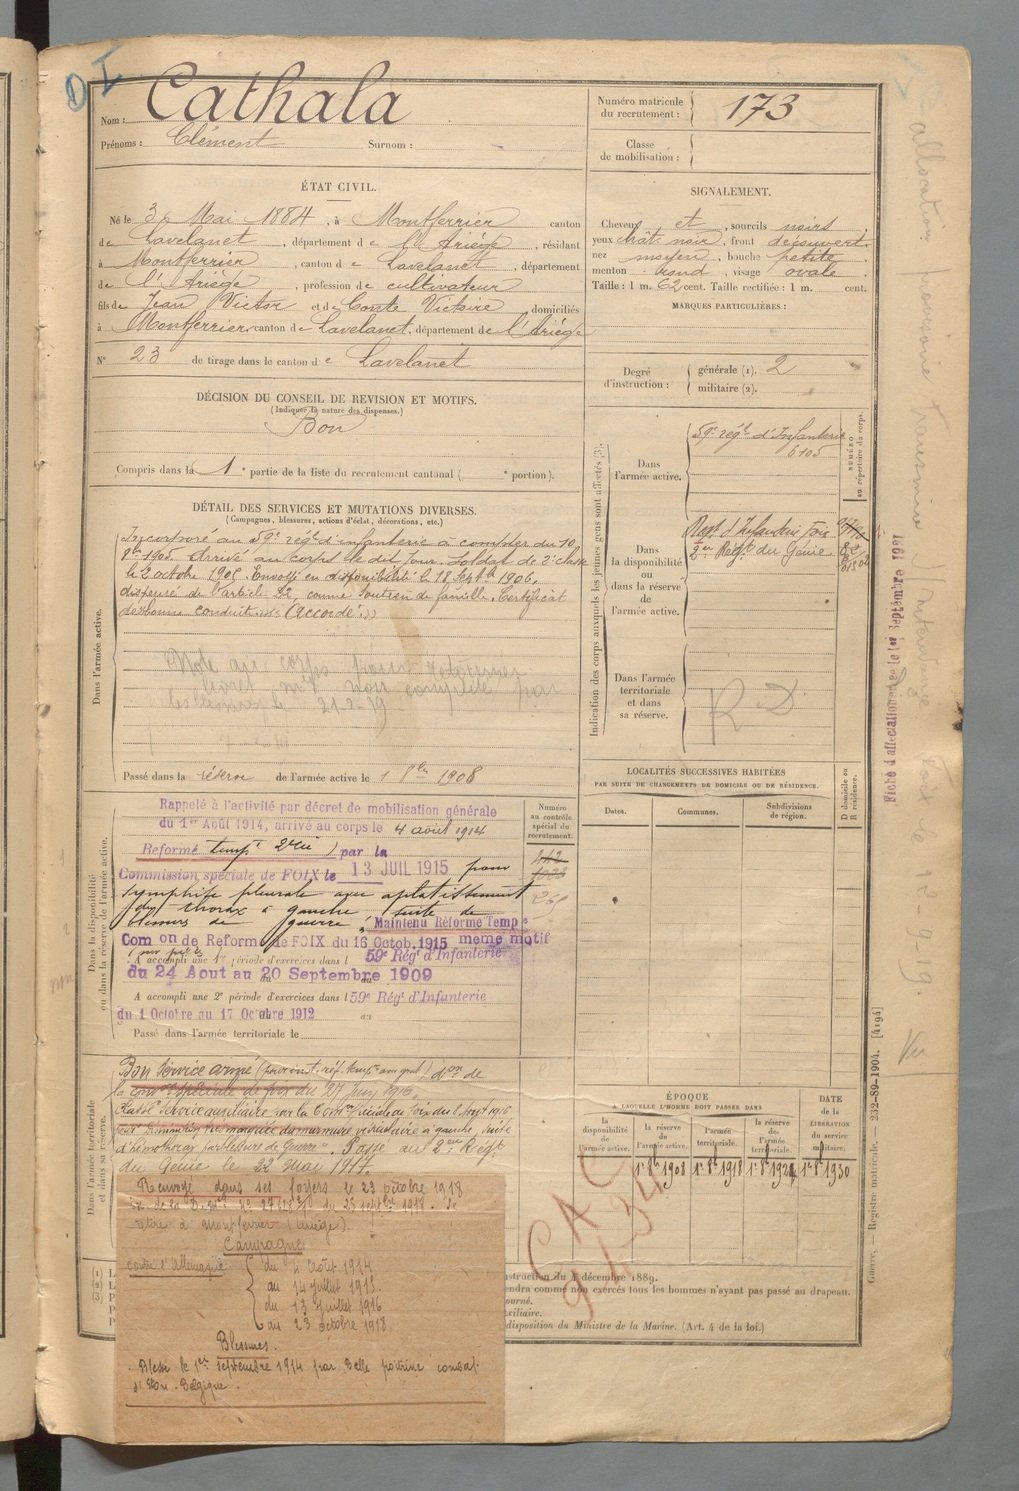 D I
Nom : Cathala
Prénoms : Clément Surnom :
Numéro matricule du recrutement : 173
Classe de mobilisation :
ÉTAT CIVIL.
Né le 3 Mai 1884, à Montferrier canton
de Lavelanet, département de l'Ariège, résidant
à Montferrier, canton de Lavelanet, département
de l'Ariège, profession de cultivateur
fils de Jean Victor et de Comte Victoire domiciliés
à Montferrier, canton de Lavelanet, département de l'Ariège
N° 23 de tirage dans le canton de Lavelanet
SIGNALEMENT.
Cheveux et, sourcils noirs
yeux chât noir, front découvert
nez moyen, bouche petite
menton rond, visage ovale
Taille : 1 m. 62 cent. Taille rectifiée : 1 m. cent.
MARQUES PARTICULIÈRES :
Degré d'instruction : générale (1). 2
militaire (2).
DÉCISION DU CONSEIL DE REVISION ET MOTIFS.
(Indiquer la nature des dispenses.)
Bon
Compris dans la 1e partie de la liste du recrutement cantonal ( e portion).
DÉTAIL DES SERVICES ET MUTATIONS DIVERSES.
(Campagnes, blessures, actions d'éclat, décorations, etc.)
Dans l'armée active.
Incorporé au 59e régt d'infanterie à compter du 10
8bre 1905. Arrivé au corps le dit jour. Soldat de 2e classe
le 2 octobre 1905. Envoyé en disponibilité le 18 Septbre 1906,
dispensé de l'article 22, comme soutien de famille. Certificat
de bonne conduite "Accordé"
Note au corps pour retourner
livret mle non complété par
21-2-19
Passé dans la réserve de l'armée active le 1 8bre 1908
Indication des corps auxquels les jeunes gens sont affectés (3).
NUMÉRO au répertoire du corps.
Dans l'armée active.
59e régt d'Infanterie
6105
Dans la disponibilité ou dans la réserve de l'armée active.
Regt d'Infanterie Foix
2e Régt du Génie
Dans l'armée territoriale et dans sa réserve.
R D
LOCALITÉS SUCCESSIVES HABITÉES
PAR SUITE DE CHANGEMENTS DE DOMICILE OU DE RÉSIDENCE.
D domicile ou R résidence.
Dates. Communes. Subdivisions de région.
Dans la disponibilité ou dans la réserve de l'armée active.
Numéro au contrôle spécial du recrutement.
Rappelé à l'activité par décret de mobilisation générale
du 1er Août 1914, arrivé au corps le 4 août 1914
Réformé tempre par la
Commission spéciale de FOIX le 13 JUIL 1915 pour
symphise pleurale avec aplatissement
du thorax à gauche suite de
blessures de guerre. Maintenu Réforme Temp.
Com on de Reforme de FOIX du 16 Octob. 1915 meme motif
A accompli une 1re période d'exercices dans l 59e Régt d'Infanterie
du 24 Aout au 20 Septembre 1909
A accompli une 2e période d'exercices dans l 59e Régt d'Infanterie
du 1 Octobre au 17 Octobre 1912 au
Passé dans l'armée territoriale le
Dans l'armée territoriale et dans sa réserve.
Bon Service armé
la comon spéciale de Foix du 27 Juin 1916.
Classé Service auxiliaire par la Comon spéciale de Foix du 8 Août 1916
pour diminution très marquée du murmure vésiculaire à gauche, suite
d'hémothorax par blessure de Guerre. Passé au 2eme Régt
du Génie le 22 Mai 1917.
Renvoyé dans ses foyers le 23 octobre 1918
Se
retire à Montferrier (Ariège).
Campagne
contre l'Allemagne
du 4 Août 1914
au 14 juillet 1915.
du 13 juillet 1916
au 23 octobre 1918.
Blessures.
Blessé le 1er septembre 1914 par balle poitrine combat
Belgique.
ÉPOQUE
À LAQUELLE L'HOMME DOIT PASSER DANS
la disponibilité de l'armée active. la réserve de l'armée active. l'armée territoriale. la réserve de l'armée territoriale.
DATE de la LIBÉRATION du service militaire.
1er 8bre 1908 1er 8bre 1918 1er 8bre 1924 1er 8bre 1930
C A C
9-1-34
(1) L
(2) L
(3) P
nstruction du décembre 1889.
endra comme non exercés tous les hommes n'ayant pas passé au drapeau.
ourné.
xiliaire.
disposition du Ministre de la Marine. (Art. 4 de la loi.)
Guerre. — Registre matricule. — 232-89-1904. [4194]
Fiche d'affectation le 1er Septembre 1921
allocation provisoire transmise à l'Intendance Foix le 12-9-19.
Vu